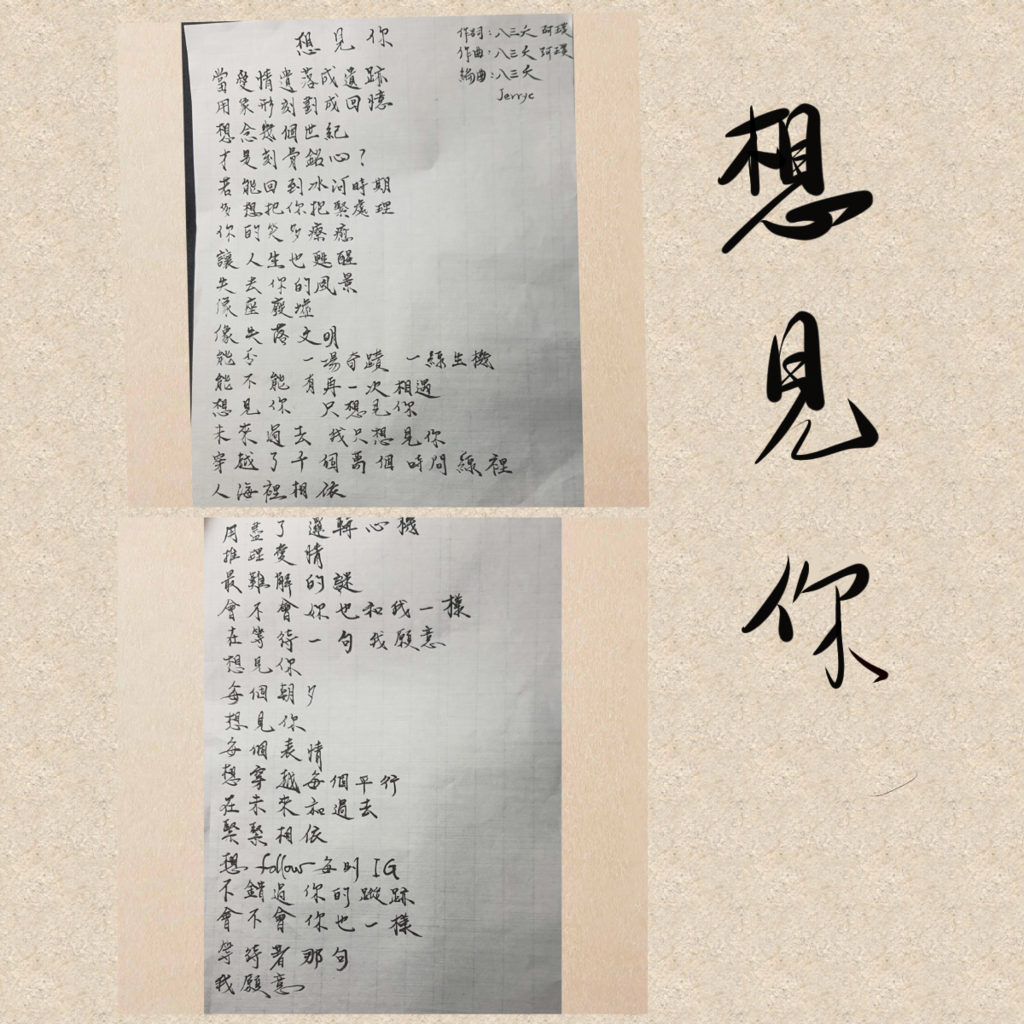 想見你
作詞：八三夭 阿璞
作曲：八三夭 阿璞
編曲：八三夭
Jerryc
當愛情遺落成遺跡
用象形刻劃成回憶
想念幾個世紀
才是刻骨銘心？
若能回到冰河時期
多想把你抱緊處理
你的笑多療癒
讓人生也甦醒
失去你的風景
像座廢墟
像失落文明
能否 一場奇蹟 一線生機
能不能有再一次相遇
想見你 只想見你
未來過去 我只想見你
穿越了千個萬個時間線裡
人海裡相依
用盡了邏輯心機
推理愛情
最難解的謎
會不會妳也和我一樣
在等待一句我願意
想見你
每個朝夕
想見你
每個表情
想穿越每個平行
在未來和過去
緊緊相依
想 follow 每則 IG
不錯過你的蹤跡
會不會你也一樣
等待著那句
我願意
想見你